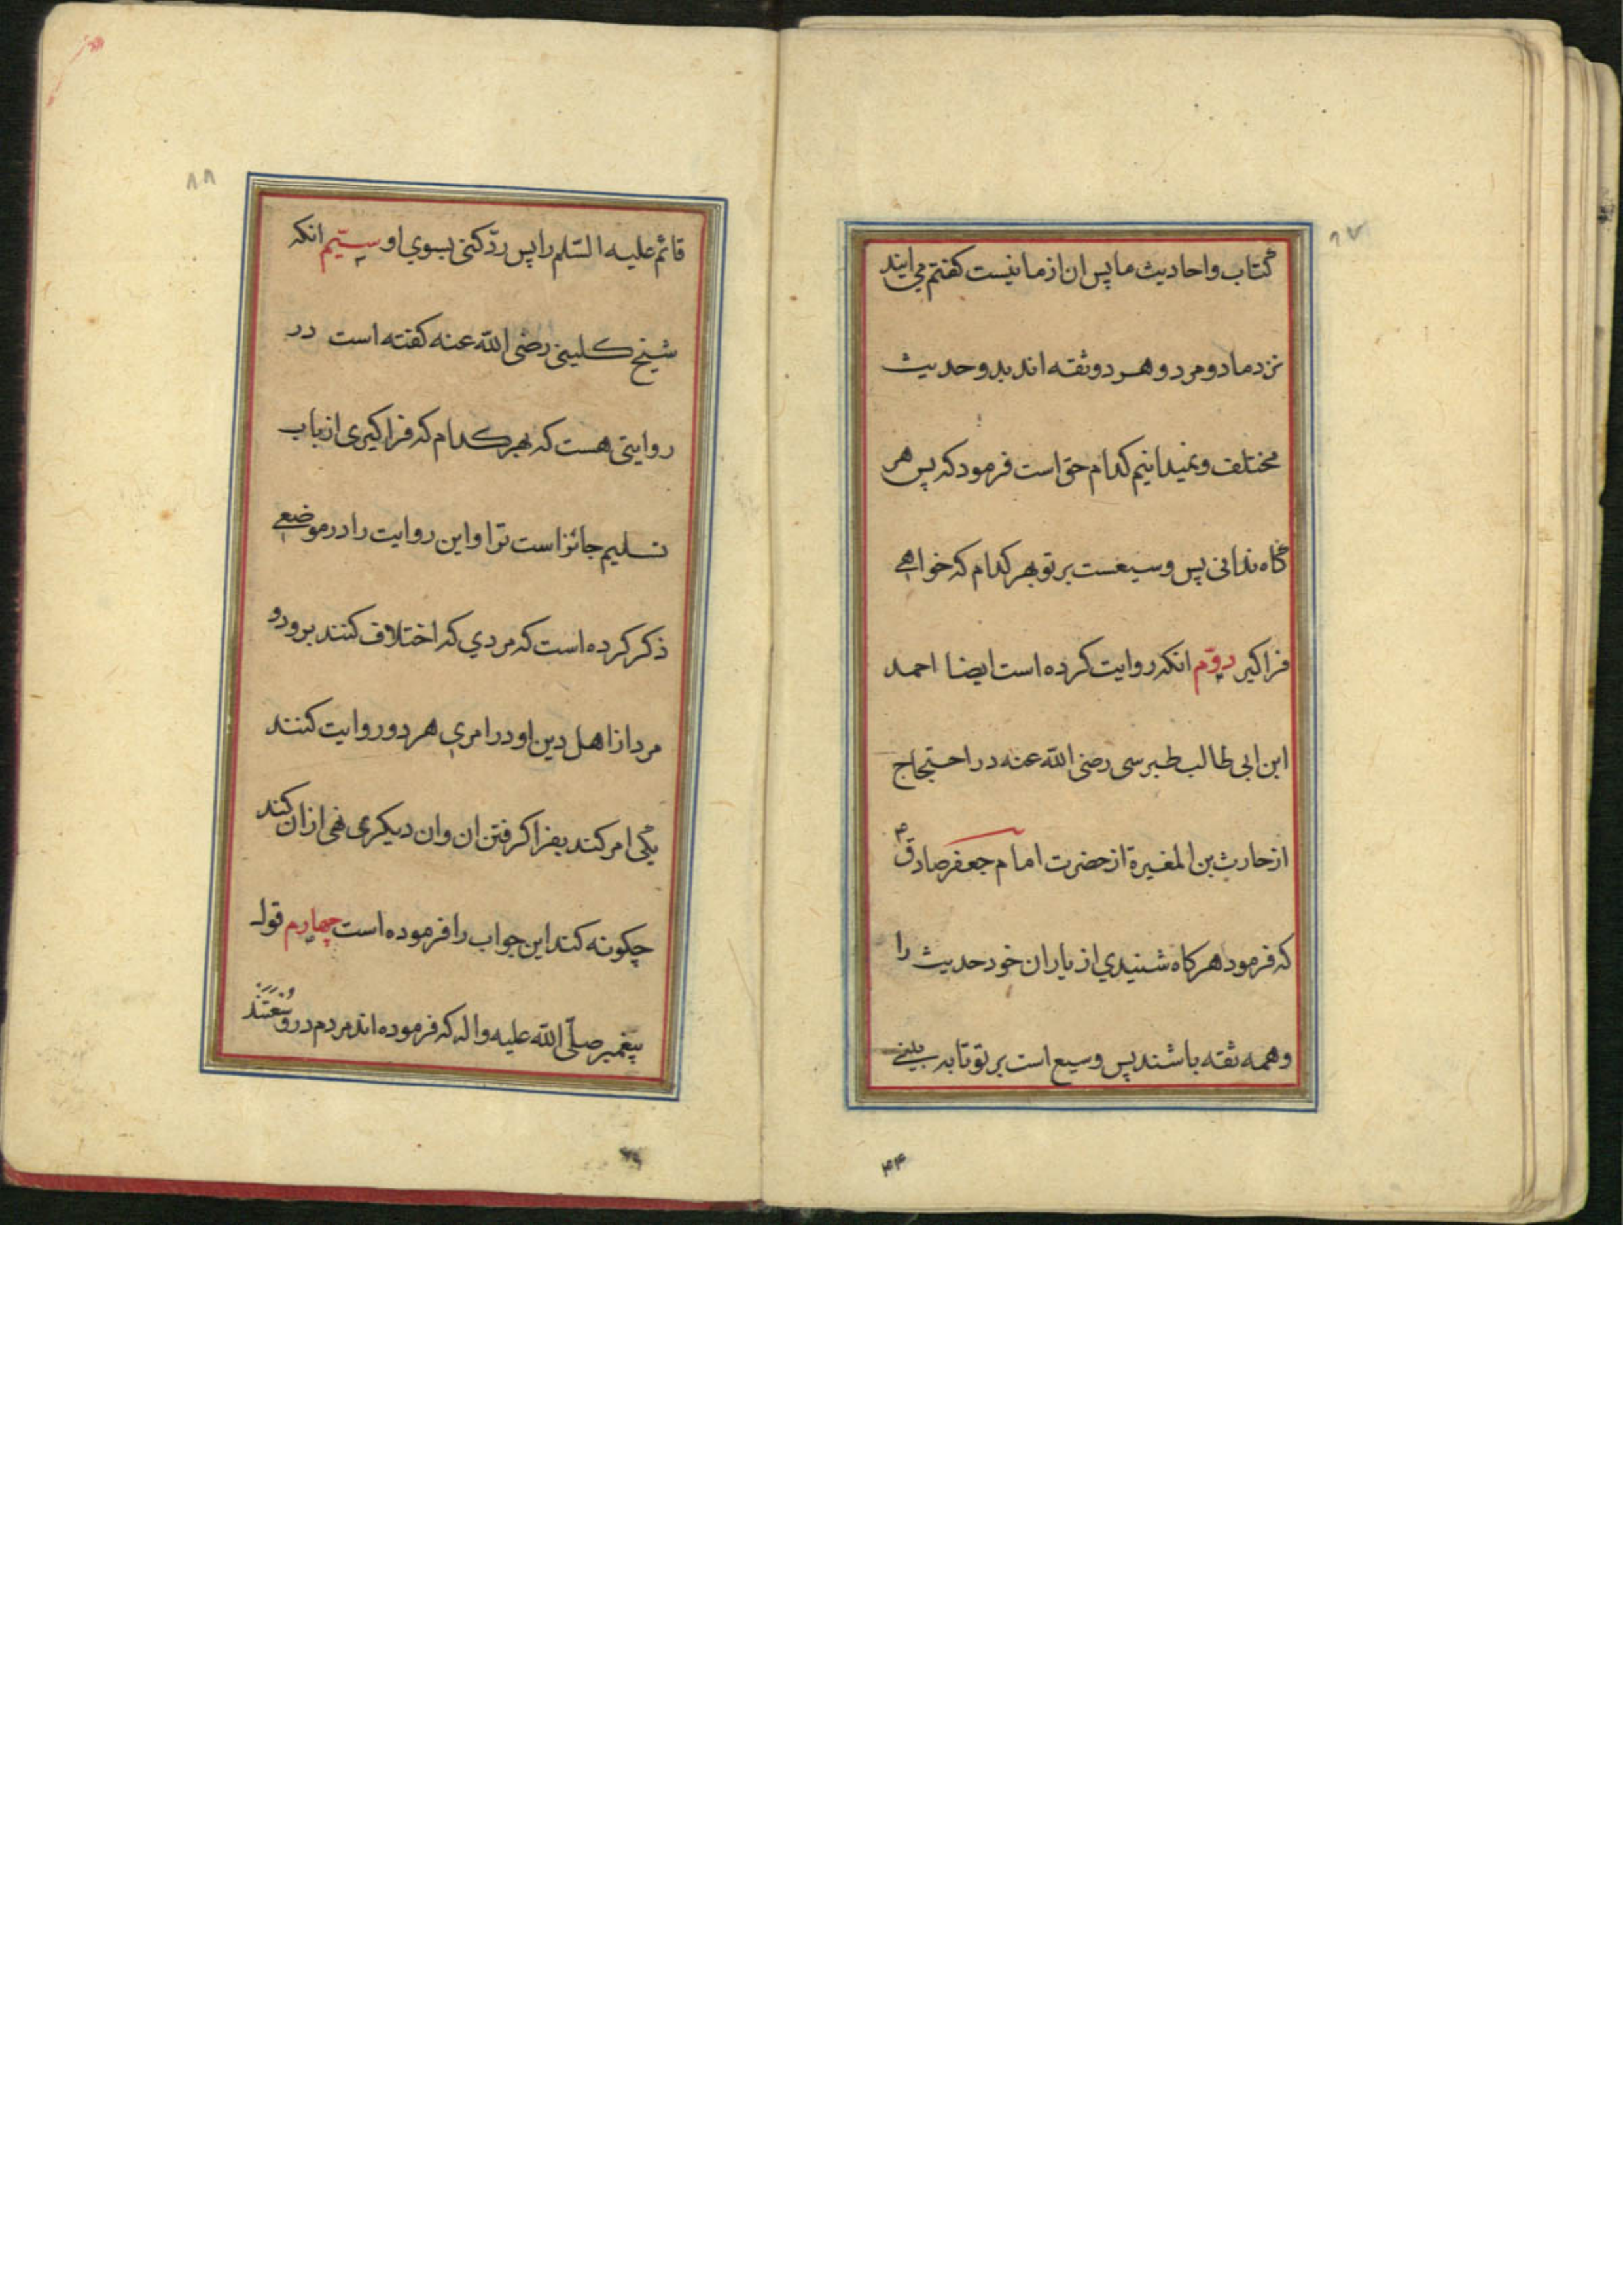 ۸۷
کتاب و احادیث ما پس ان از ما نیست کفتم می ایند
نزد ما دو مرد و هر دو ثقه اند بدو حدیث
مختلف و نمیدانیم کدام حق است فرمود که پس هر
کاه ندانی پس وسیعست بر تو بهر کدام که خواهی
فراکیر دوّم انکه روایت کرده است ایضا احمد
ابن ابی طالب طبرسی رضی الله عنه در احتجاج
از حارث بن المغیرة از حضرت امام جعفر صادق ع
که فرمود هر کاه شنیدی از یاران خود حدیث را
و همه ثقه باشند پس وسیع است بر تو تا به بینی
۴۴
۸۸
قائم علیه السّلم را پس ردّ کنی بسوی او سیّیم انکه
شیخ کلینی رضی الله عنه کفته است در
روایتی هست که بهر کدام که فراکیری از باب
تسلیم جائز است ترا و این روایت را در موضعی
ذکر کرده است که مردی که اختلاف کنند برو دو
مرد از اهل دین او در امری هر دو روایت کنند
یکی امر کند بفرا کرفتن ان و ان دیکری نهی از ان کند
چکونه کند این جواب را فرموده است چهارم قول
پیغمبر صلّی الله علیه واله که فرموده اند مردم در وسعتند